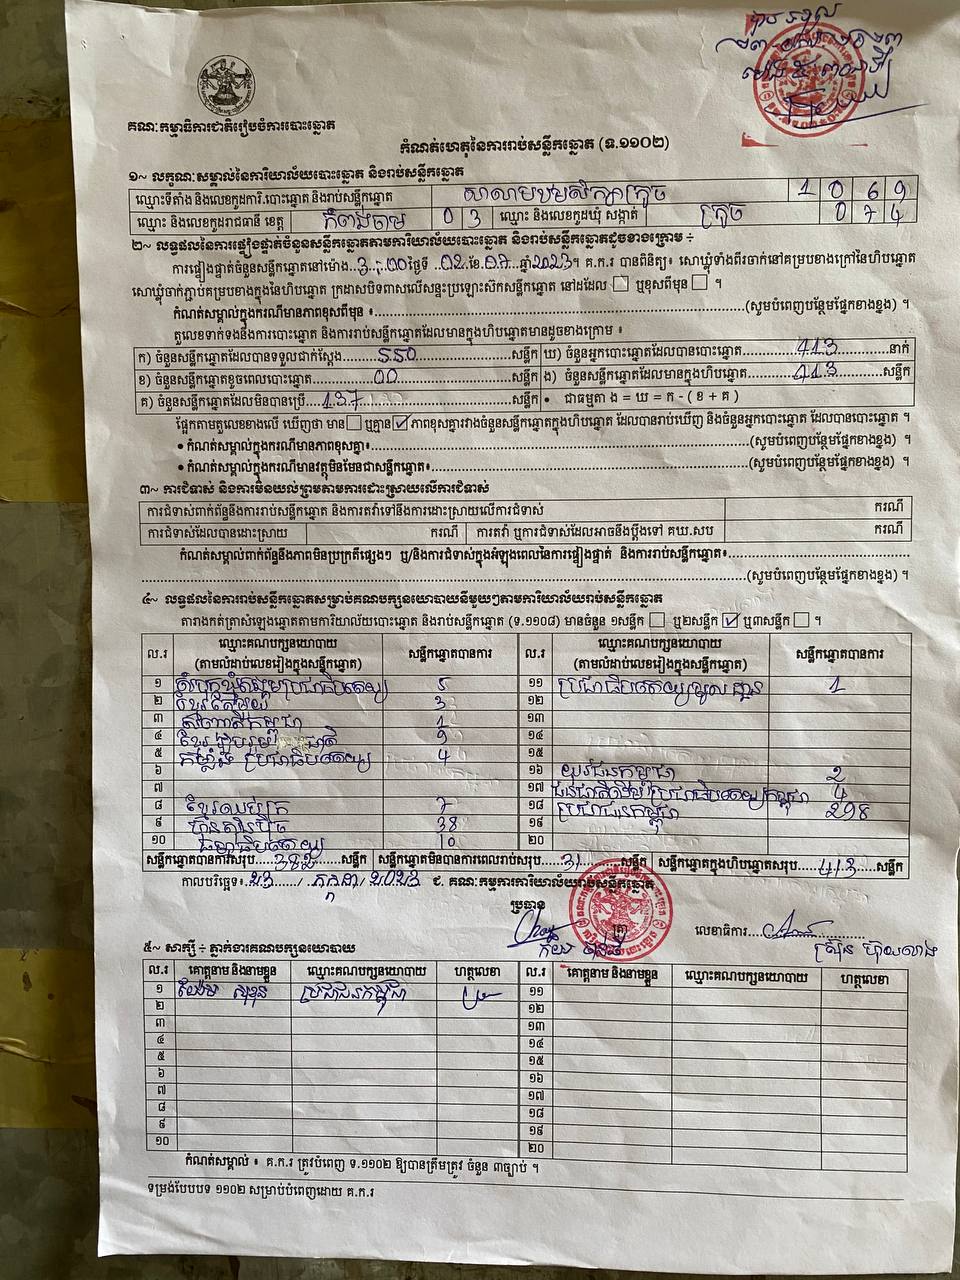 គណៈកម្មាធិការជាតិរៀបចំការបោះឆ្នោត
កំណត់ហេតុនៃការរាប់សន្លឹកឆ្នោត (ទ.១១០២)
១~ លក្ខណៈសម្គាល់នៃការិយាល័យបោះឆ្នោត និងរាប់សន្លឹកឆ្នោត
ឈ្មោះទីតាំង និងលេខកូដការិ.បោះឆ្នោត និងរាប់សន្លឹកឆ្នោត សាលាបឋមសិក្សាក្រូច 1 0 6 9
ឈ្មោះ និងលេខកូដរាជធានី ខេត្ត កំពង់ចាម 0 3 ឈ្មោះ និងលេខកូដឃុំ សង្កាត់ ក្រូច 0 7 4
២~ លទ្ធផលនៃការផ្ទៀងផ្ទាត់ចំនួនសន្លឹកឆ្នោតតាមការិយាល័យបោះឆ្នោត និងរាប់សន្លឹកឆ្នោតដូចខាងក្រោម ÷
ការផ្ទៀងផ្ទាត់ចំនួនសន្លឹកឆ្នោតនៅម៉ោង 3:00 ថ្ងៃទី ខែ 07 ឆ្នាំ 2023 ។ គ.ក.រ បានពិនិត្យ៖ សោឃ្លុំទាំងពីរចាក់នៅគម្របខាងក្រៅនៃហិបឆ្នោត
សោឃ្លុំចាក់ភ្ជាប់គម្របខាងក្នុងនៃហិបឆ្នោត ក្រដាសបិទពាសលើសន្ទះប្រឡោះស៊កសន្លឹកឆ្នោត នៅដដែល ឬខុសពីមុន ។
កំណត់សម្គាល់ក្នុងករណីមានភាពខុសពីមុន ៖ (សូមបំពេញបន្ថែមផ្នែកខាងខ្នង) ។
តួលេខទាក់ទងនឹងការបោះឆ្នោត និងការរាប់សន្លឹកឆ្នោតដែលមានក្នុងហិបឆ្នោតមានដូចខាងក្រោម ៖
ក) ចំនួនសន្លឹកឆ្នោតដែលបានទទួលជាក់ស្តែង 550 សន្លឹក ឃ) ចំនួនអ្នកបោះឆ្នោតដែលបានបោះឆ្នោត 413 នាក់
ខ) ចំនួនសន្លឹកឆ្នោតខូចពេលបោះឆ្នោត 00 សន្លឹក ង) ចំនួនសន្លឹកឆ្នោតដែលមានក្នុងហិបឆ្នោត 413 សន្លឹក
គ) ចំនួនសន្លឹកឆ្នោតដែលមិនបានប្រើ 137 សន្លឹក • ជាធម្មតា ង = ឃ = ក - ( ខ + គ )
ផ្អែកតាមតួលេខខាងលើ ឃើញថា មាន ឬគ្មាន ✓ ភាពខុសគ្នារវាងចំនួនសន្លឹកឆ្នោតក្នុងហិបឆ្នោត ដែលបានរាប់ឃើញ និងចំនួនអ្នកបោះឆ្នោត ដែលបានបោះឆ្នោត ។
• កំណត់សម្គាល់ក្នុងករណីមានភាពខុសគ្នា៖ (សូមបំពេញបន្ថែមផ្នែកខាងខ្នង) ។
• កំណត់សម្គាល់ក្នុងករណីមានវត្ថុមិនមែនជាសន្លឹកឆ្នោត៖ (សូមបំពេញបន្ថែមផ្នែកខាងខ្នង) ។
៣~ ការជំទាស់ និងការមិនយល់ព្រមតាមការដោះស្រាយលើការជំទាស់
ការជំទាស់ពាក់ព័ន្ធនឹងការរាប់សន្លឹកឆ្នោត និងការតវ៉ាទៅនឹងការដោះស្រាយលើការជំទាស់ ករណី
ការជំទាស់ដែលបានដោះស្រាយ ករណី ការតវ៉ា ឬការជំទាស់ដែលអាចនឹងប្តឹងទៅ គឃ.សប ករណី
កំណត់សម្គាល់ពាក់ព័ន្ធនឹងភាពមិនប្រក្រតីផ្សេងៗ ឬ/និងការជំទាស់ក្នុងអំឡុងពេលនៃការផ្ទៀងផ្ទាត់ និងការរាប់សន្លឹកឆ្នោត៖
(សូមបំពេញបន្ថែមផ្នែកខាងខ្នង) ។
៤~ លទ្ធផលនៃការរាប់សន្លឹកឆ្នោតសម្រាប់គណបក្សនយោបាយនីមួយៗតាមការិយាល័យរាប់សន្លឹកឆ្នោត
តារាងកត់ត្រាសំឡេងឆ្នោតតាមការិយាល័យបោះឆ្នោត និងរាប់សន្លឹកឆ្នោត (ទ.១១០៨) មានចំនួន ១សន្លឹក ឬ២សន្លឹក ✓ ឬ៣សន្លឹក ។
ល.រ ឈ្មោះគណបក្សនយោបាយ (តាមលំដាប់លេខរៀងក្នុងសន្លឹកឆ្នោត) សន្លឹកឆ្នោតបានការ ល.រ ឈ្មោះគណបក្សនយោបាយ (តាមលំដាប់លេខរៀងក្នុងសន្លឹកឆ្នោត) សន្លឹកឆ្នោតបានការ
១ សំបុកឃ្មុំសង្គមប្រជាធិបតេយ្យ 5 ១១ ប្រជាធិបតេយ្យមូលដ្ឋាន 1
២ ខ្មែរតែមួយ 3 ១២
៣ កម្ពុជា 1 ១៣
៤ ខ្មែររួបរួមជាតិ 9 ១៤
៥ កម្លាំងប្រជាធិបតេយ្យ 4 ១៥
៦ ១៦ យុវជនកម្ពុជា 2
៧ ១៧ ជនជាតិដើមប្រជាធិបតេយ្យកម្ពុជា 4
៨ ខ្មែរឈប់ក្រ 7 ១៨ ប្រជាជនកម្ពុជា 298
៩ ហ៊្វុនស៊ិនប៉ិច 38 ១៩
១០ ធម្មាធិបតេយ្យ 10 ២០
សន្លឹកឆ្នោតបានការសរុប 382 សន្លឹក សន្លឹកឆ្នោតមិនបានការពេលរាប់សរុប 31 សន្លឹក សន្លឹកឆ្នោតក្នុងហិបឆ្នោតសរុប 413 សន្លឹក
កាលបរិច្ឆេទ៖ 23 / កក្កដា / 2023 ជ. គណៈកម្មការការិយាល័យរាប់សន្លឹកឆ្នោត
ប្រធាន
ត្រា លេខាធិការ
៥~ សាក្សី ÷ ភ្នាក់ងារគណបក្សនយោបាយ
ល.រ គោត្តនាម និងនាមខ្លួន ឈ្មោះគណបក្សនយោបាយ ហត្ថលេខា ល.រ គោត្តនាម និងនាមខ្លួន ឈ្មោះគណបក្សនយោបាយ ហត្ថលេខា
១ ប្រជាជនកម្ពុជា ១១
២ ១២
៣ ១៣
៤ ១៤
៥ ១៥
៦ ១៦
៧ ១៧
៨ ១៨
៩ ១៩
១០ ២០
កំណត់សម្គាល់ ៖ គ.ក.រ ត្រូវបំពេញ ទ.១១០២ ឱ្យបានត្រឹមត្រូវ ចំនួន ៣ច្បាប់ ។
ទម្រង់បែបបទ ១១០២ សម្រាប់បំពេញដោយ គ.ក.រ